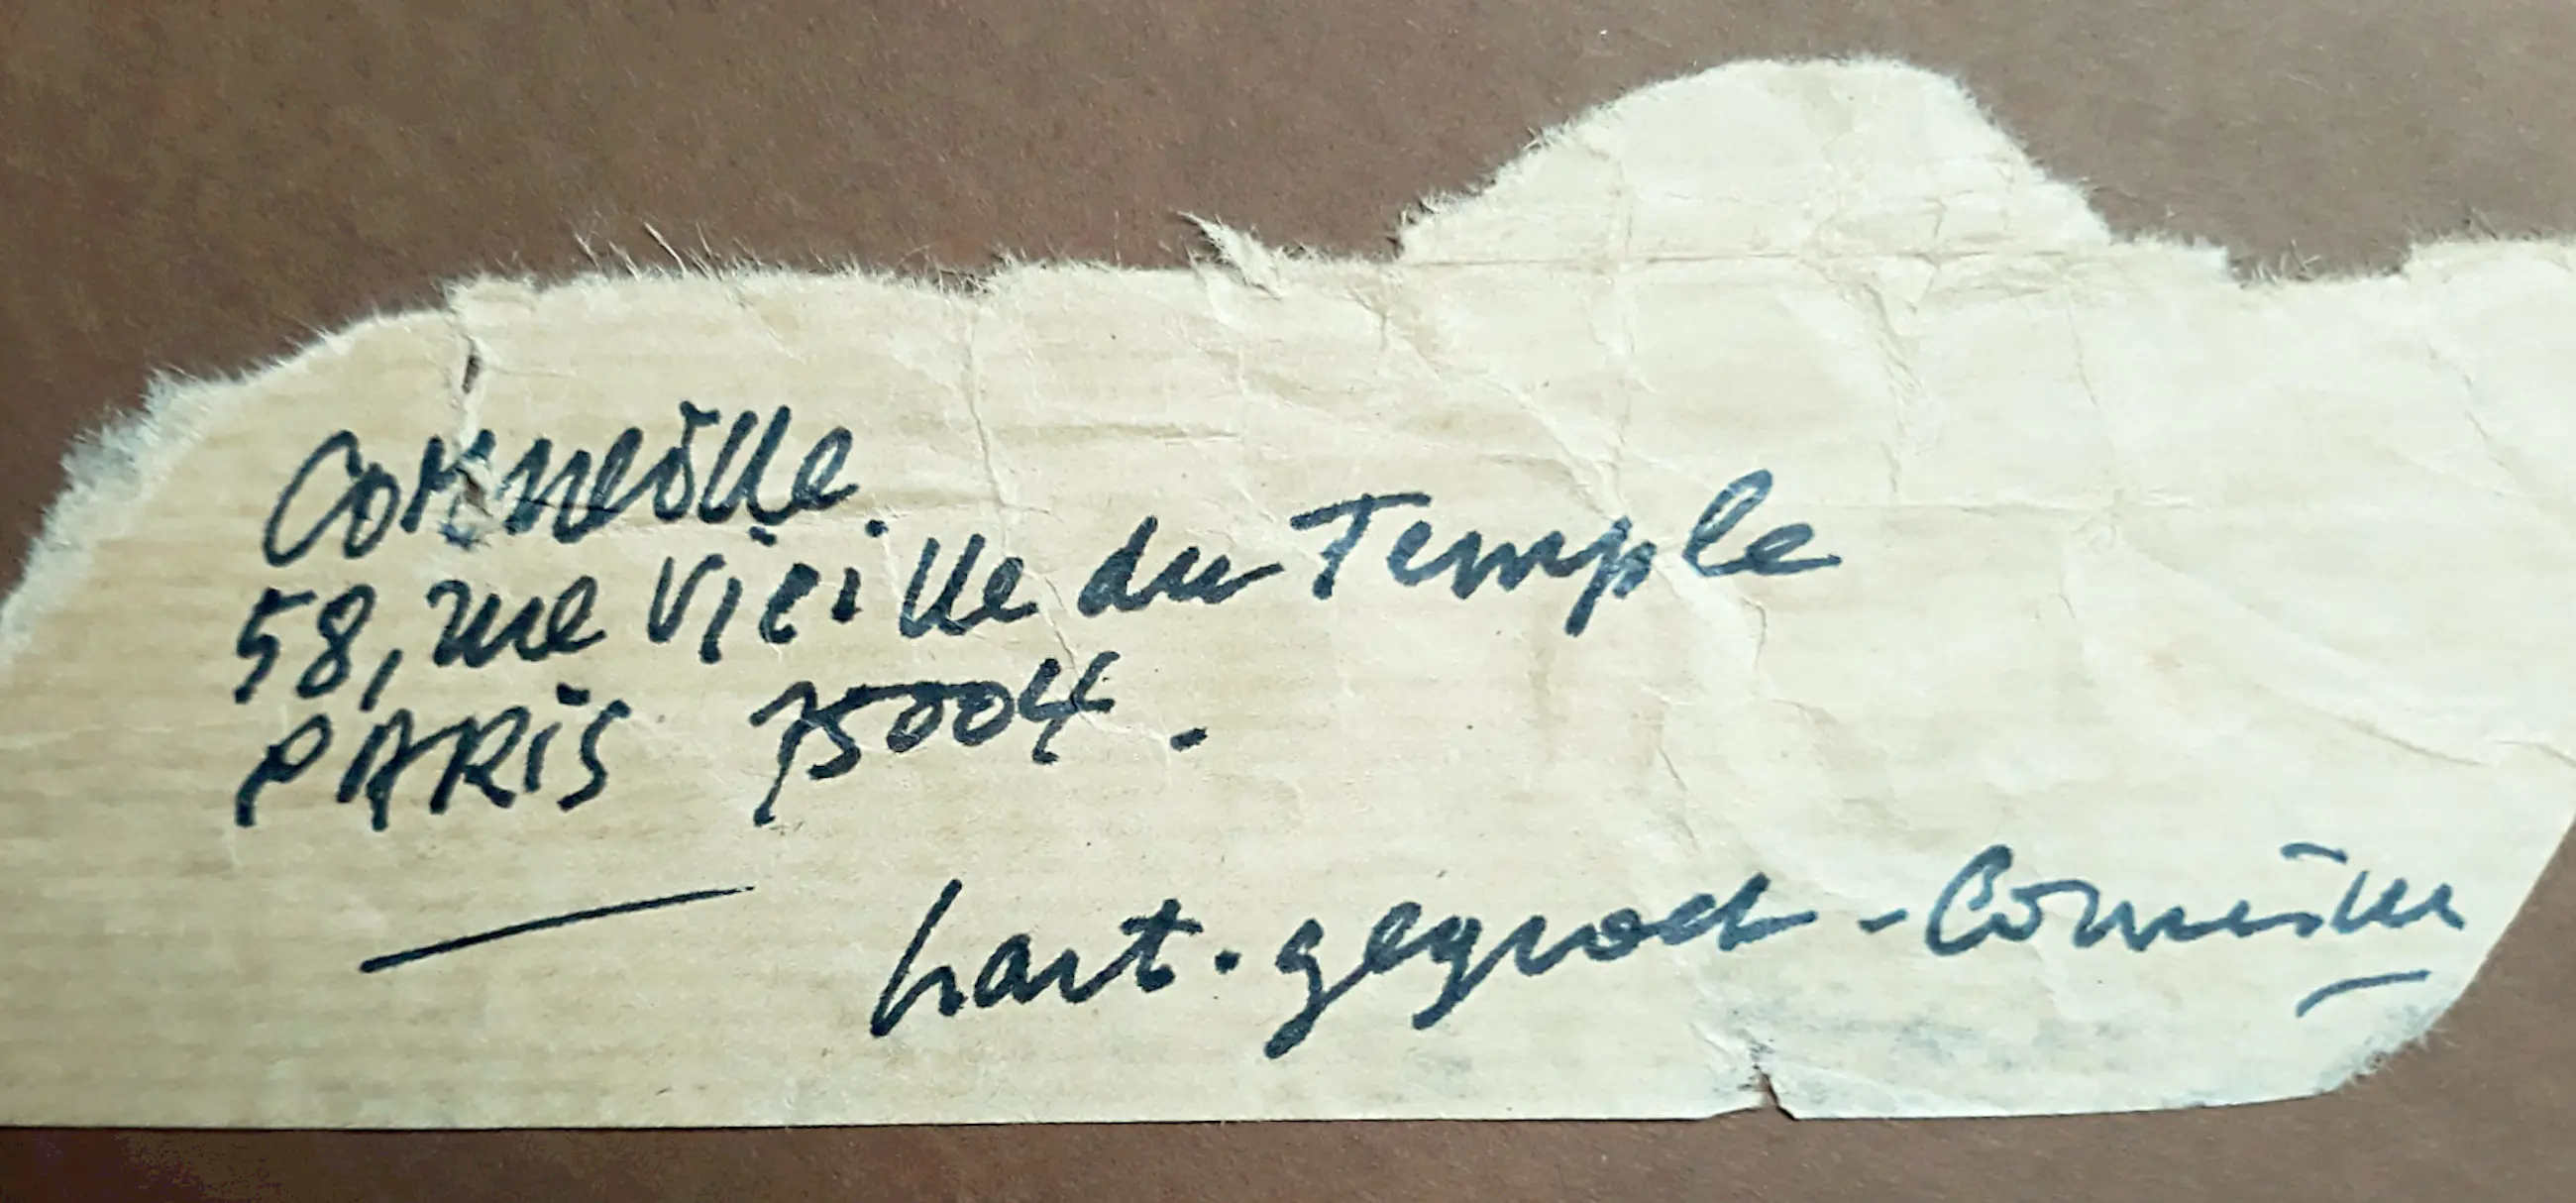 Corneille.
58, rue Vieille du Temple
PARIS 75004.
hart. gegroet - Corneille